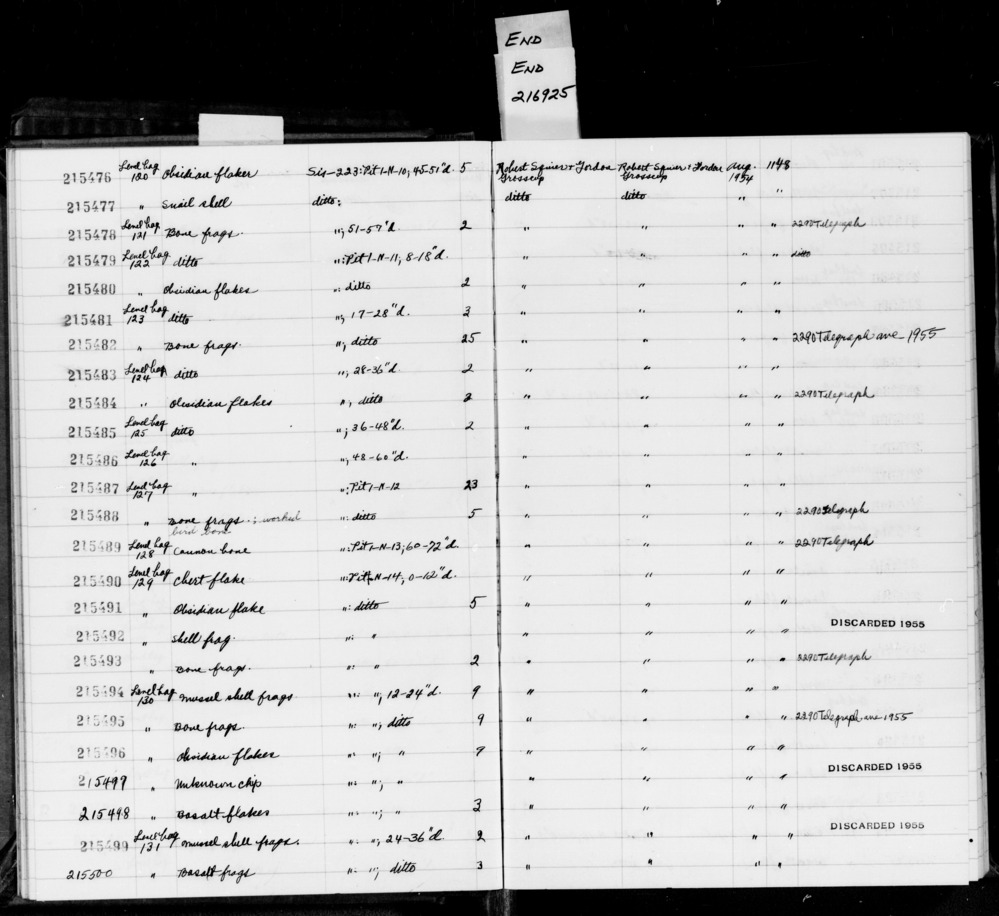 END
END
216925
215476 Level bag 120 Obsidian flakes Sis-223: Pit 1-N-10; 45-51"d. 5 Robert Squier + Gordon Grosscup Robert Squier + Gordon Grosscup Aug. 1954 1148
215477 " Snail shell ditto: ditto ditto " "
215478 Level bag 121 Bone frags. "; 51-57"d. 2 " " " " 2290 Telegraph
215479 Level bag 122 ditto ": Pit 1-N-11; 8-18"d. " " " " ditto
215480 " Obsidian flakes ": ditto 2 " " " "
215481 Level bag 123 ditto "; 17-28"d. 3 " " " "
215482 " Bone frags. "; ditto 25 " " " " 2290 Telegraph ave - 1955
215483 Level bag 124 ditto "; 28-36"d. 2 " " " "
215484 " Obsidian flakes "; ditto 2 " " " " 2290 Telegraph
215485 Level bag 125 ditto "; 36-48"d. 2 " " " "
215486 Level bag 126 " "; 48-60"d. " " " "
215487 Level bag 127 " ": Pit 1-N-12 23 " " " "
215488 " Bone frags.; worked bird bone ": ditto 5 " " " " 2290 Telegraph
215489 Level bag 128 Cannon bone ": Pit 1-N-13; 60-72"d. " " " " 2290 Telegraph
215490 Level bag 129 Chert flake ": Pit 1-N-14; 0-12"d. " " " "
215491 " Obsidian flake ": ditto 5 " " " "
215492 " Shell frag. ": " " " " " DISCARDED 1955
215493 " Bone frags. ": " 2 " " " " 2290 Telegraph
215494 Level bag 130 Mussel shell frags ": "; 12-24"d. 9 " " " "
215495 " Bone frags. ": "; ditto 9 " " " " 2290 Telegraph ave 1955
215496 " Obsidian flakes ": "; " 7 " " " "
215497 " Unknown chip ": "; " " " " " DISCARDED 1955
215498 " Basalt flakes ": "; " 3 " " " "
215499 Level bag 131 Mussel shell frags. ": "; 24-36"d. 2 " " " " DISCARDED 1955
215500 " Basalt frags ": "; ditto 3 " " " "